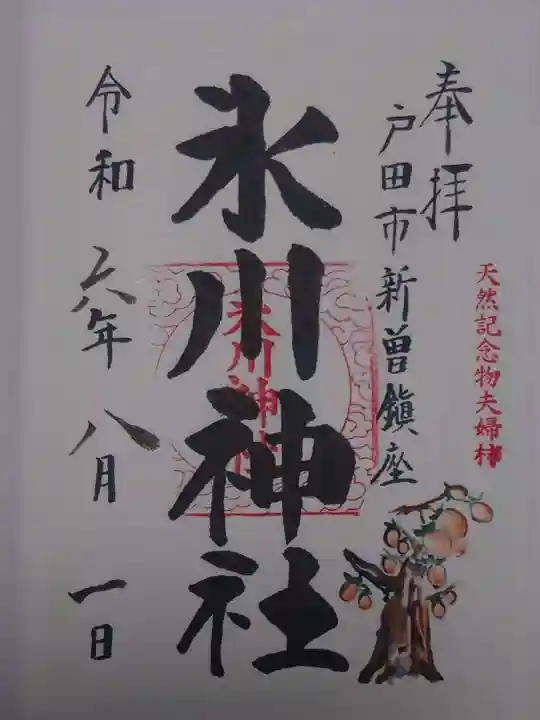 奉拝
戸田市新曽鎮座
天然記念物夫婦柿
氷川神社
氷川神社
令和六年八月一日